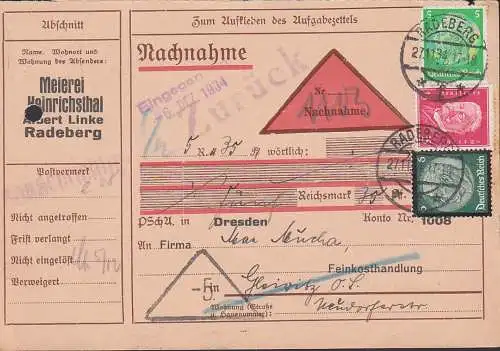 Abschnitt
Name, Wohnort und
Wohnung des Absenders:
Meierei
Heinrichsthal
Albert Linke
Radeberg
Postvermerk
Nicht angetroffen
Frist verlangt
Nicht eingelöst
Verweigert
Zum Aufkleben des Aufgabezettels
Nachnahme
Zurück
Eingegan
-6. DEZ. 1934
Nr.
Nachnahme
1113
5 RM 35 Rpf wörtlich:
Fünf Reichsmark 35
PSchA. in Dresden Konto Nr. 1008
An Firma Max Mucha,
Feinkosthandlung
in Gleiwitz O.S.
Wohnung (Straße
u. Hausnummer)
Neudorferstr
-5-
RADEBERG
27.11.34
RADEBERG
27.11
5
Deutsches Reich
5